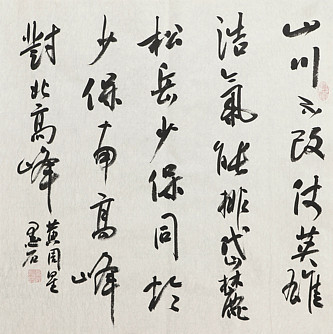 山川不改仗英雄
浩氣能排岱麓
松岳少保同於
少保南高峰
對北高峰
黃周星
墨石